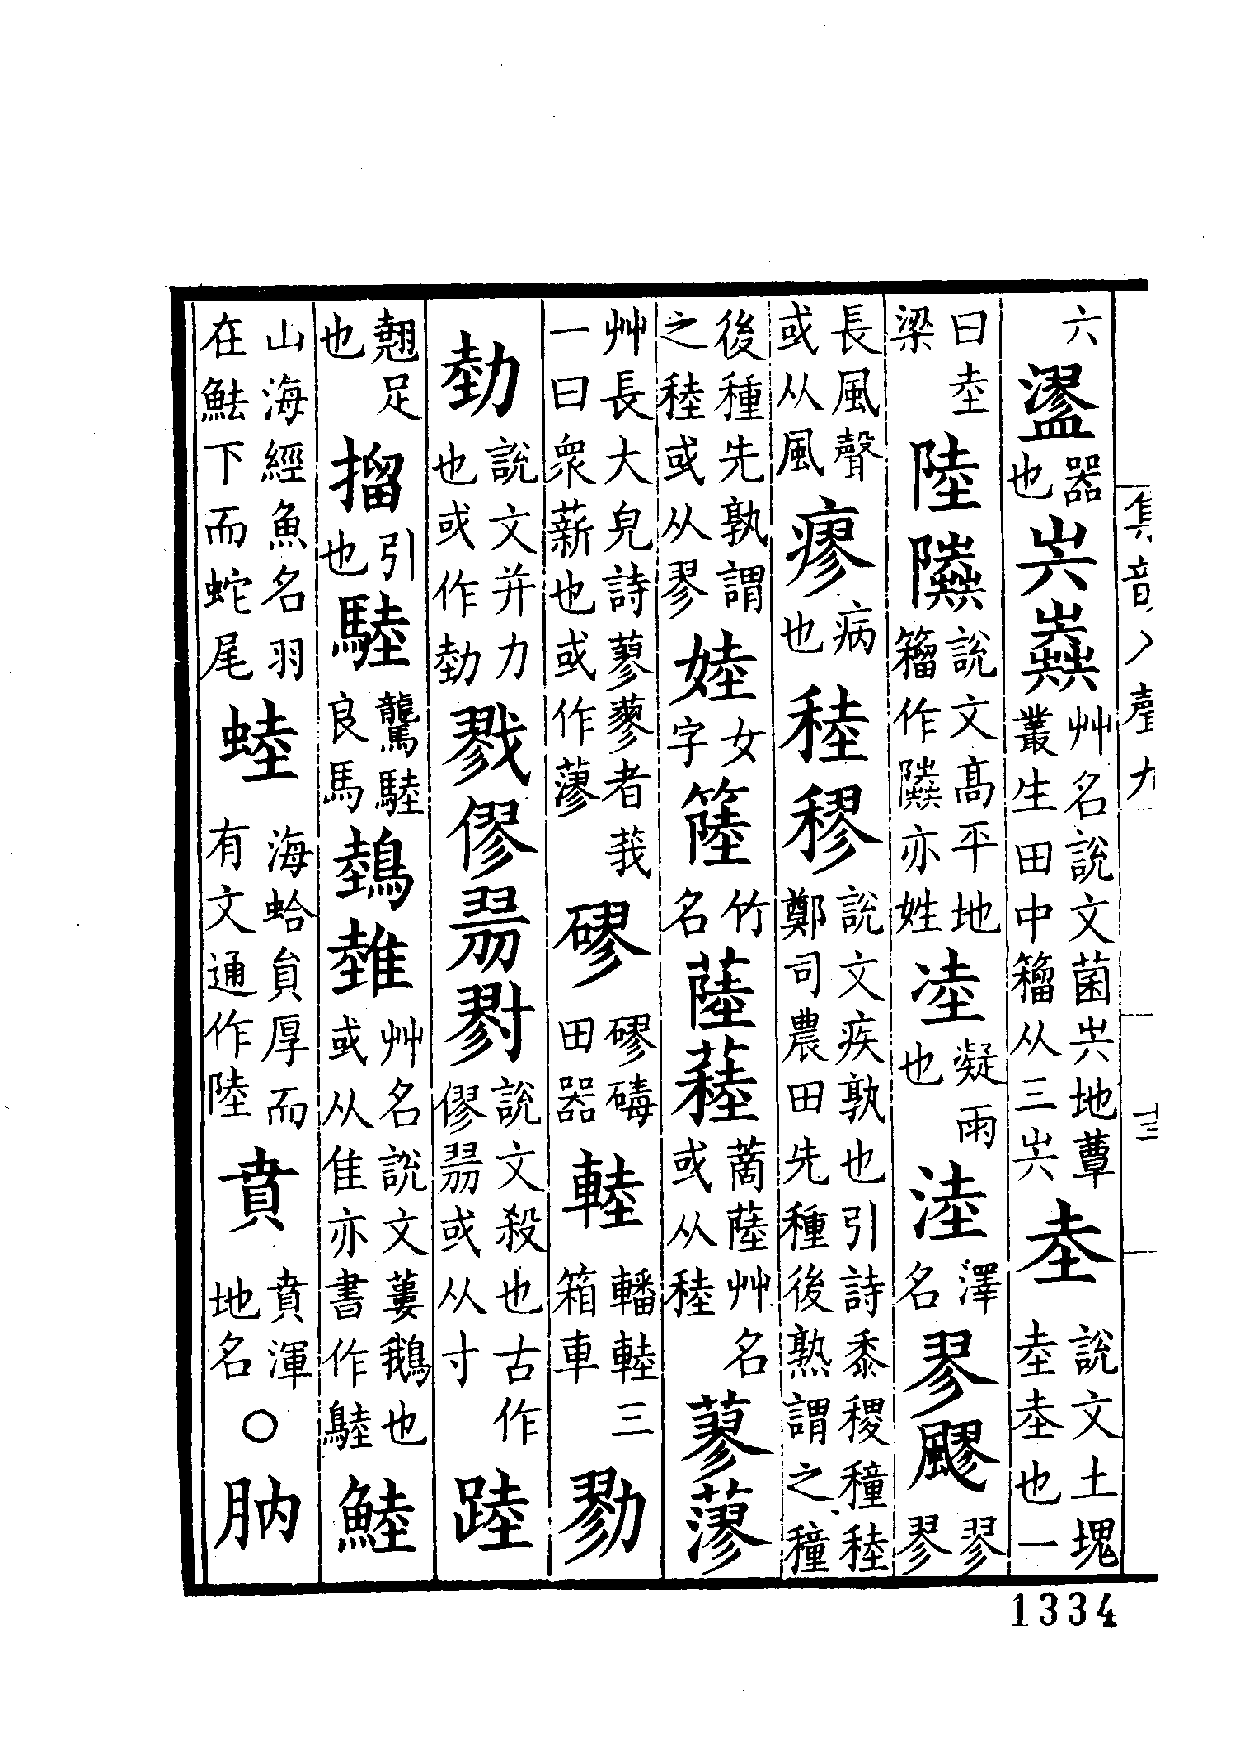 六 器也 圥 艸名說文菌圥地蕈叢生田中籀从三圥 坴 說文土塊坴坴也一
曰坴梁 陸 說文高平地籀作亦姓 凝雨也 淕 澤名 翏飂 翏翏
長風聲或从風 瘳 病也 稑穋 說文疾孰也引詩黍稷穜稑鄭司農田先種後熟謂之穜
後種先孰謂之稑或从翏 女字 竹名 艸名或从稑 蓼
艸長大皃詩蓼蓼者莪一曰衆薪也或作 磟 磟碡田器 轓三箱車 勠
說文并力也或作 戮僇 說文殺也古作僇或从寸 踛
翹足也 引也 驡良馬 鵱 艸名說文蔞鵝也或从隹亦書作 鯥
山海經魚名羽在魼下而蛇尾 海蛤員厚而有文通作陸 賁 賁渾地名 ○ 肭
1334